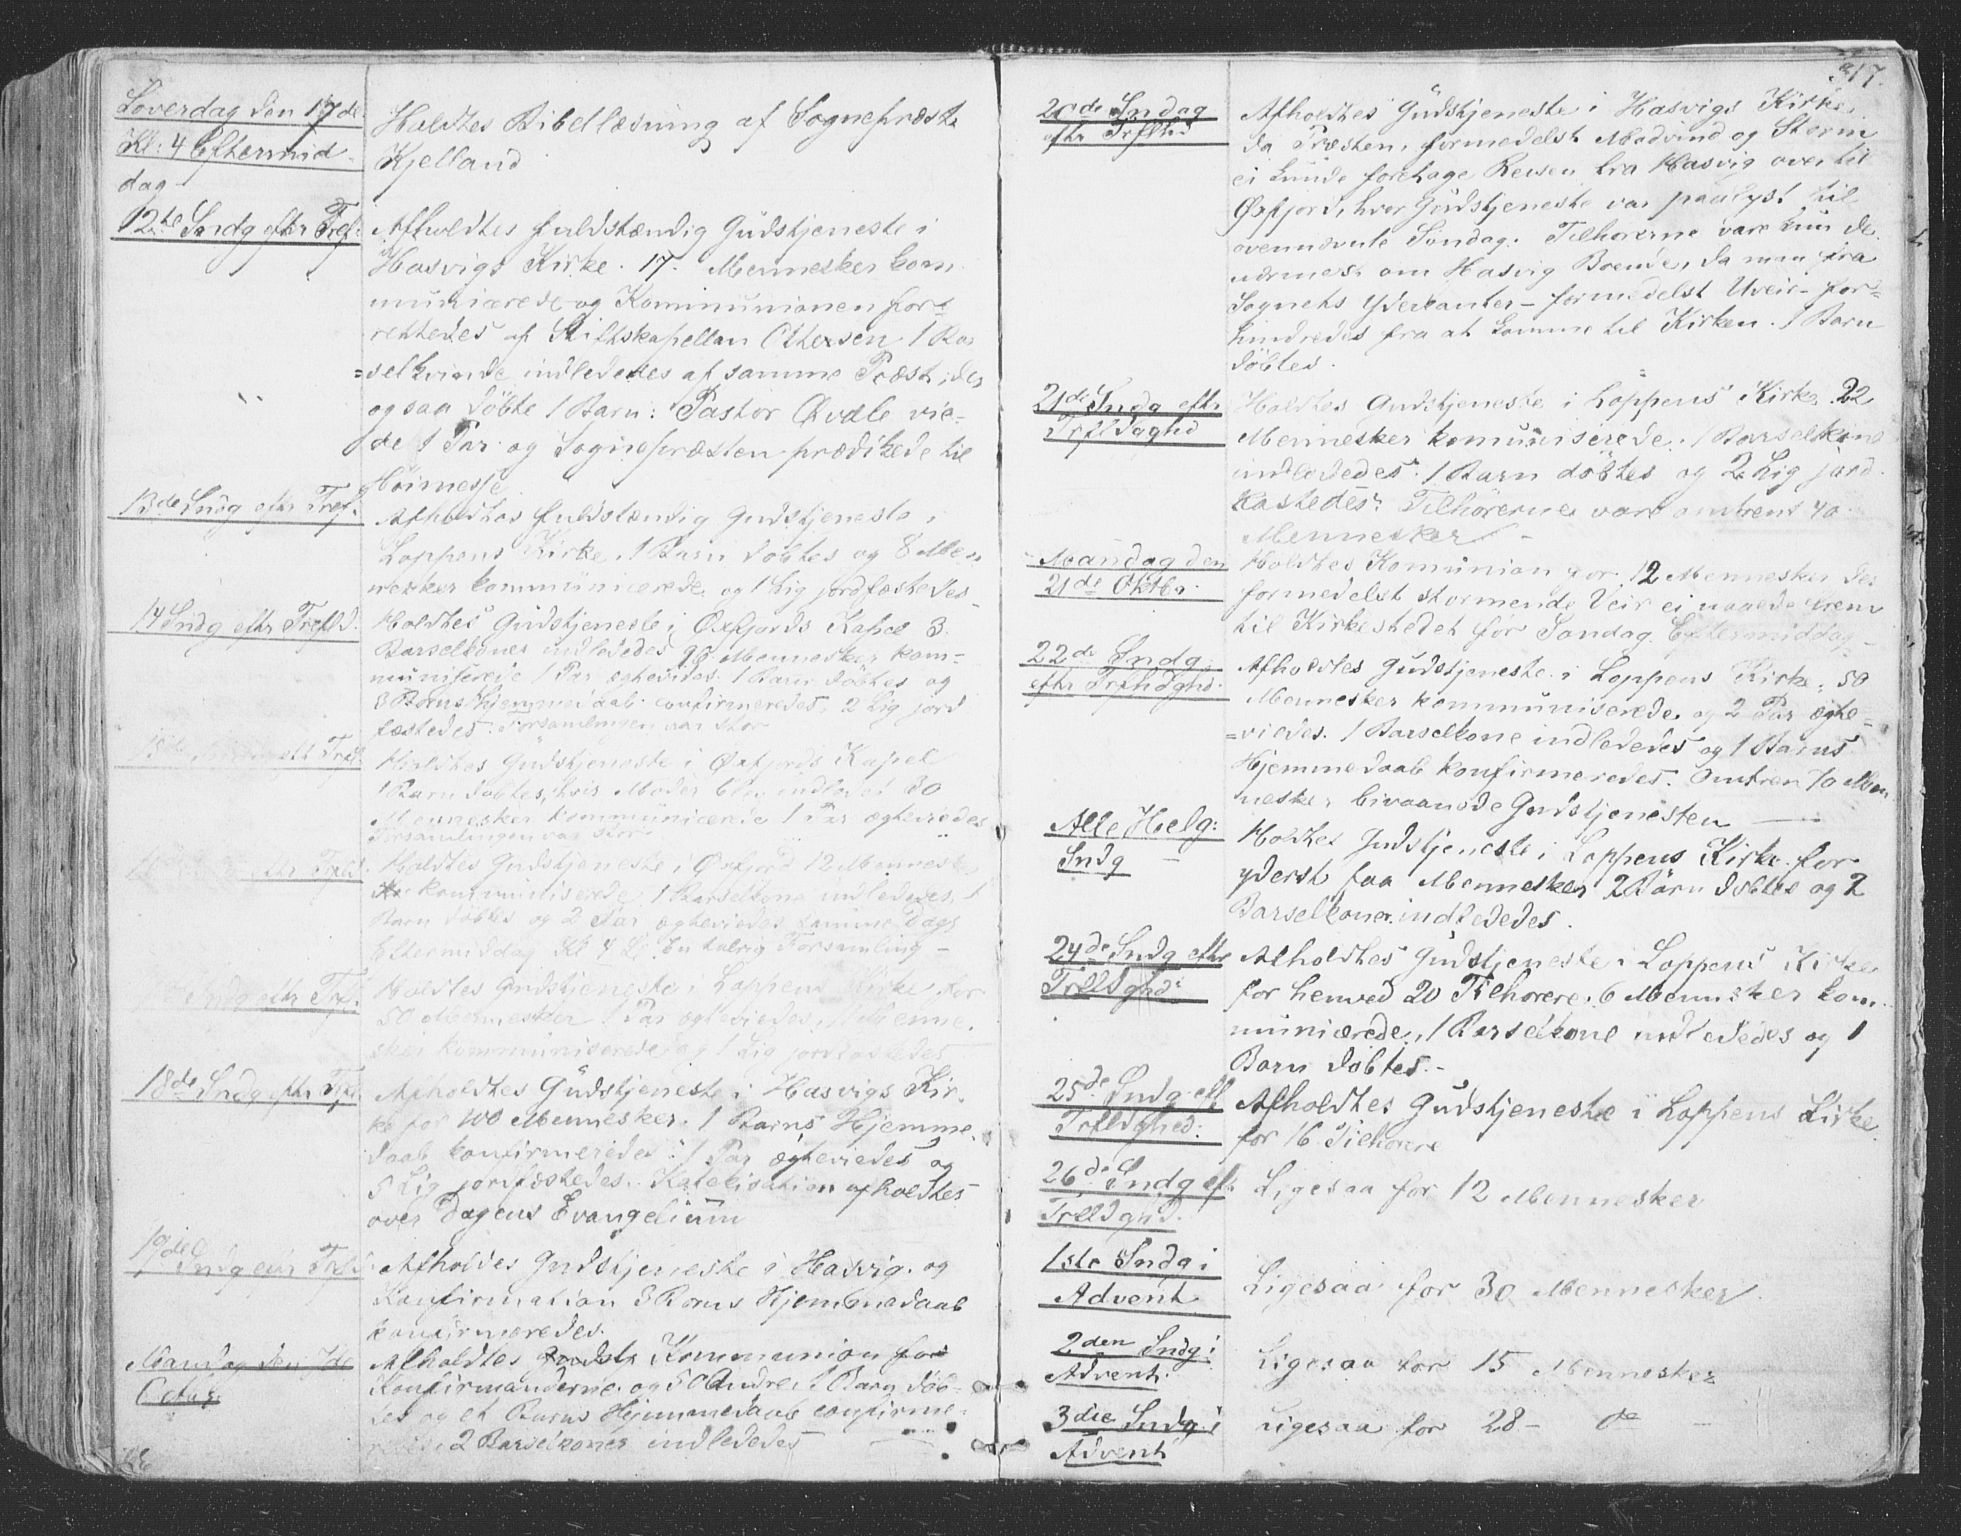 Løverdag den 17de
Kl: 4 Eftermid-
dag
Holdtes Bibellæsning af Sognepræst
Kjelland
12te Sndg efter Tref:
Afholdtes fuldstændig Gudstjeneste i
Hasvigs Kirke. 17. Mennesker kom
municærede og Kommunionen for=
rettedes af Stiftskapellan Ottersen 1 Bar
=selkvinde indlededes af samme Præst, der
ogsaa døbte 1 Barn: Pastor Qvale vie-
de 1 Par og Sognepræsten prædikede til
Høimesse.
13de Sndg efter Tref:
Afholdtes Fuldstændig Gudstjeneste i
Loppens Kirke. 1 Barn døbtes og 8 Men
nesker kommunicærede og 1 Lig jordfæstedes-
14 Sndg efter Trefld.
Holdtes Gudstjeneste i Øxfjords Kapel 3
Barselkoner indlededes Mennesker kom-
muniserede 1 Par ægteviedes. 1 Barn døbtes og
3 Børns Hjemmedaab confirmeredes, 2 Lig jord
fæstedes. Forsamlingen var stor
Tref
Holdtes Gudstjeneste i Øxfjords Kapel
1 Barn døbtes, hvis Moder blev indledet 30
Mennesker kommunicærede 1 Par ægteviedes
Forsamlingen var stor
Holdtes Gudstjeneste i Øxfjord 12 Mennesk
kommuniserede. 1 Barselkone indlededes, 1
Barn døbtes og 2 Par ægteviedes samme Dags
Eftermiddag Kl 4 En talrig Forsamling-
Sndg efter Tref.
Holdtes Gudstjeneste i Loppens Kirke for
50 Mennesker 1 Par ægteviedes, Menne-
sker kommuniserede og 1 Lig jordfæstedes
18de Sndg efter Tref
Afholdtes Gudstjeneste i Hasvigs Kir-
ke for 100 Mennesker. 1 Barns Hjemme-
daab konfirmeredes. 1 Par ægteviedes og
5 Lig jordfæstedes. Katekisation afholdtes
over Dagens Evangelium
19de Sndg efter Trefld
Afholdes Gudstjeneste i Hasvig og
Konfirmation 3 Børns Hjemmedaab
konfirmeredes.
Mandag den 7de
Octbr
Afholdtes Gudstj Kommunion for
Konfirmanderne og 50 Andre. 1 Barn døb-
tes og et Barns Hjemmedaab confirme-
redes 2 Barselkoner indlededes
317.
20de Sndag
efter Trefltid
Afholdtes Gudstjeneste i Hasvigs Kirke,
da Præsten, formedelst Modvind og Storm
ei kunde foretage Reisen fra Hasvig over til
Øxfjord, hvor Gudstjeneste var paalyst til
ovennævnte Søndag. Tilhørerne vare kun de
nærmest om Hasvig Boende, da man fra
Sognets Yderkanter- formedelst Uveir- for=
hindredes fra at komme til Kirken. 1 Barn
døbtes.
21de Sndg eftr
Trefldaghd
Holdtes Gudstjeneste i Loppens Kirke. 22
Mennesker komuniserede. 1 Barselkone
indlededes. 1 Barn døbtes og 2 Lig jord
kastedes. Tilhørerne vare omtrent 40
Mennesker -
Mandag den
21de Oktbr
Holdtes Komunion for 12 Mennesker der
formedelst stormende Veir ei naaede frem
til Kirkestedet før Søndag Eftermiddag-
22de Sndg
eftr Trefhdghd.
Afholdtes Gudstjeneste i Loppens Kirke, 50
Mennesker kommuniserede og 2 Par ægte-
=viedes. 1 Barselkone indlededes og 1 Barns
Hjemmedaab konfirmeredes. Omtren 70 Men
nesker bivaanede Gudstjenesten
Alle Helg:
Sndg
Holdtes Gudstjeneste i Loppens Kirke for
yderst faa Mennesker 2 Børn døbtes og 2
Barselkoner indlededes.
24de Sndg efter
Trefldghd:
Afholdtes Gudstjeneste i Loppens Kirke
for henved 20 Tilhørere. 6 Mennesker kom-
municærede, 1 Barselkone indlededes og 1
Barn døbtes.-
25de Sndg eff
Trefldghed:
Afholdtes Gudstjeneste i Loppens Kirke
for 16 Tilhørere
26de Sndg eft.
Trefldghd.
Ligesaa for 12 Mennesker
1ste Sndg i
Advent
Ligesaa for 30 Mennesker.
2den Sndg i
Advent.
Ligesaa for 15 Mennesker
3die Sndg i
Advent
Ligesaa for 28- do -